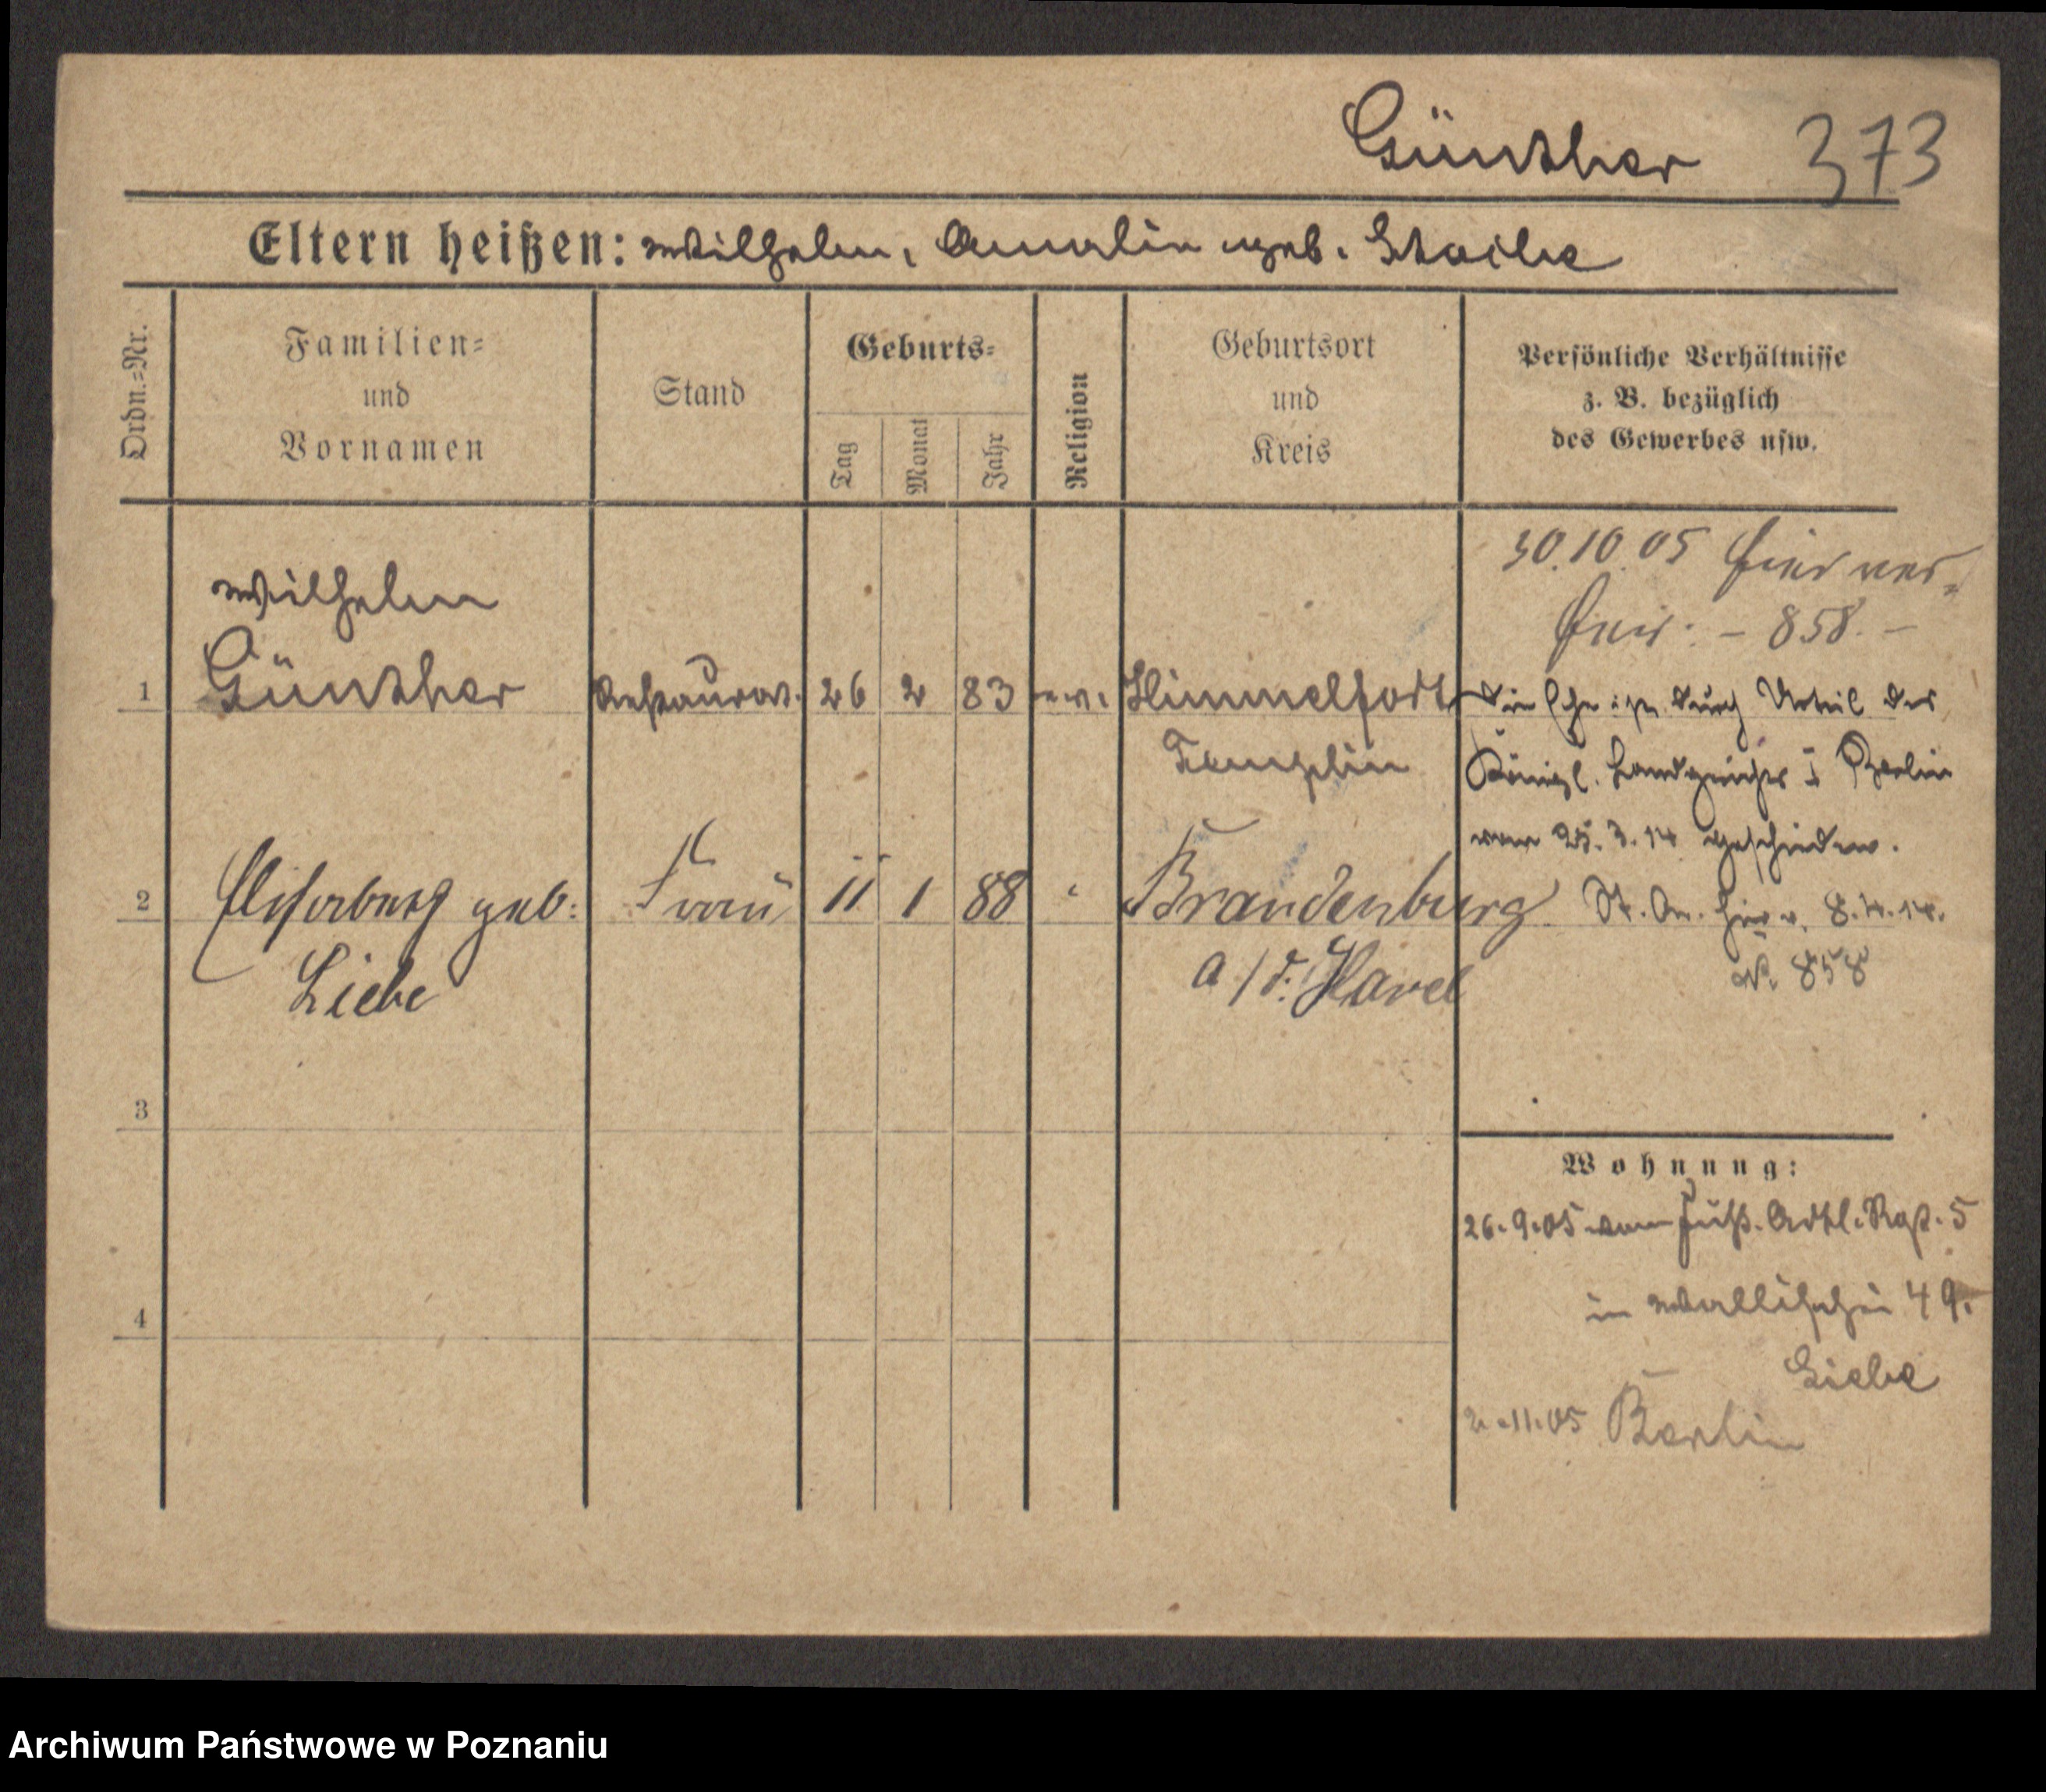 Günther 373
Eltern heißen: Wilhelm, Amalie geb. Staike
Ordn.=Nr.
Familien=
und
Vornamen
Stand
Geburts=
Tag
Monat
Jahr
Religion
Geburtsort
und
Kreis
Persönliche Verhältnisse
z. B. bezüglich
des Gewerbes usw.
30.10.05 hier ver=
heir. - 858. -
Wilhelm
1 Günther Restaurat. 26 2 83 ev. Himmelfort
Templin
Die Ehe ist durch Urteil des
Königl. Landgerichts I Berlin
vom 25.3.14 geschieden.
St. Am. hier v. 8.4.14.
N. 858
2 Elisabeth geb: Frau 11 1 88 " Brandenburg
Liebe
a/d. Havel
3
4
Wohnung:
26.9.05 vom Fußs. Artl. Rgt. 5
in Wallischei 49.
Liebe
2.11.05 Berlin
Archiwum Państwowe w Poznaniu